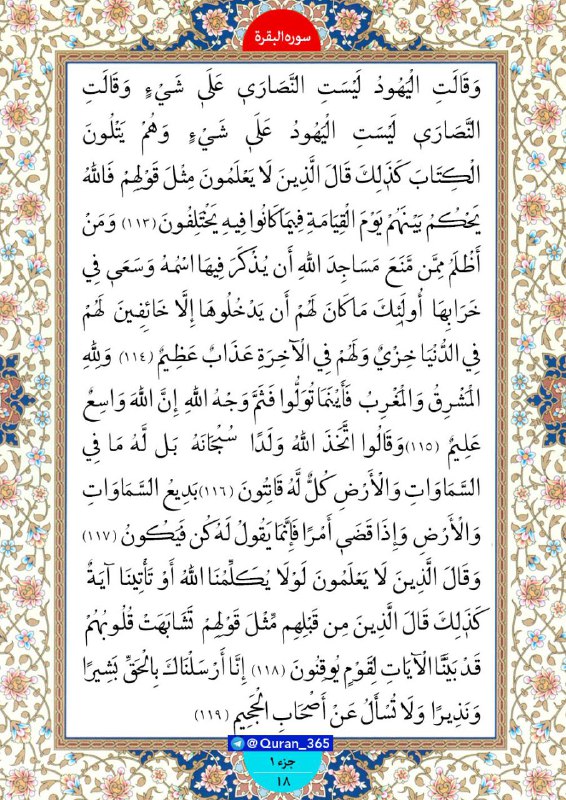 سوره البقرة
وَقَالَتِ الْيَهُودُ لَيْسَتِ النَّصَارَىٰ عَلَىٰ شَيْءٍ وَقَالَتِ
النَّصَارَىٰ لَيْسَتِ الْيَهُودُ عَلَىٰ شَيْءٍ وَهُمْ يَتْلُونَ
الْكِتَابَ كَذَٰلِكَ قَالَ الَّذِينَ لَا يَعْلَمُونَ مِثْلَ قَوْلِهِمْ فَاللَّهُ
يَحْكُمُ بَيْنَهُمْ يَوْمَ الْقِيَامَةِ فِيمَا كَانُوا فِيهِ يَخْتَلِفُونَ (۱۱۳) وَمَنْ
أَظْلَمُ مِمَّن مَّنَعَ مَسَاجِدَ اللَّهِ أَن يُذْكَرَ فِيهَا اسْمُهُ وَسَعَىٰ فِي
خَرَابِهَا أُولَٰئِكَ مَا كَانَ لَهُمْ أَن يَدْخُلُوهَا إِلَّا خَائِفِينَ لَهُمْ
فِي الدُّنْيَا خِزْيٌ وَلَهُمْ فِي الْآخِرَةِ عَذَابٌ عَظِيمٌ (۱۱۴) وَلِلَّهِ
الْمَشْرِقُ وَالْمَغْرِبُ فَأَيْنَمَا تُوَلُّوا فَثَمَّ وَجْهُ اللَّهِ إِنَّ اللَّهَ وَاسِعٌ
عَلِيمٌ (۱۱۵) وَقَالُوا اتَّخَذَ اللَّهُ وَلَدًا سُبْحَانَهُ بَل لَّهُ مَا فِي
السَّمَاوَاتِ وَالْأَرْضِ كُلٌّ لَّهُ قَانِتُونَ (۱۱۶) بَدِيعُ السَّمَاوَاتِ
وَالْأَرْضِ وَإِذَا قَضَىٰ أَمْرًا فَإِنَّمَا يَقُولُ لَهُ كُن فَيَكُونُ (۱۱۷)
وَقَالَ الَّذِينَ لَا يَعْلَمُونَ لَوْلَا يُكَلِّمُنَا اللَّهُ أَوْ تَأْتِينَا آيَةٌ
كَذَٰلِكَ قَالَ الَّذِينَ مِن قَبْلِهِم مِّثْلَ قَوْلِهِمْ تَشَابَهَتْ قُلُوبُهُمْ
قَدْ بَيَّنَّا الْآيَاتِ لِقَوْمٍ يُوقِنُونَ (۱۱۸) إِنَّا أَرْسَلْنَاكَ بِالْحَقِّ بَشِيرًا
وَنَذِيرًا وَلَا تُسْأَلُ عَنْ أَصْحَابِ الْجَحِيمِ (۱۱۹)
@Quran_365
جزء ۱
۱۸